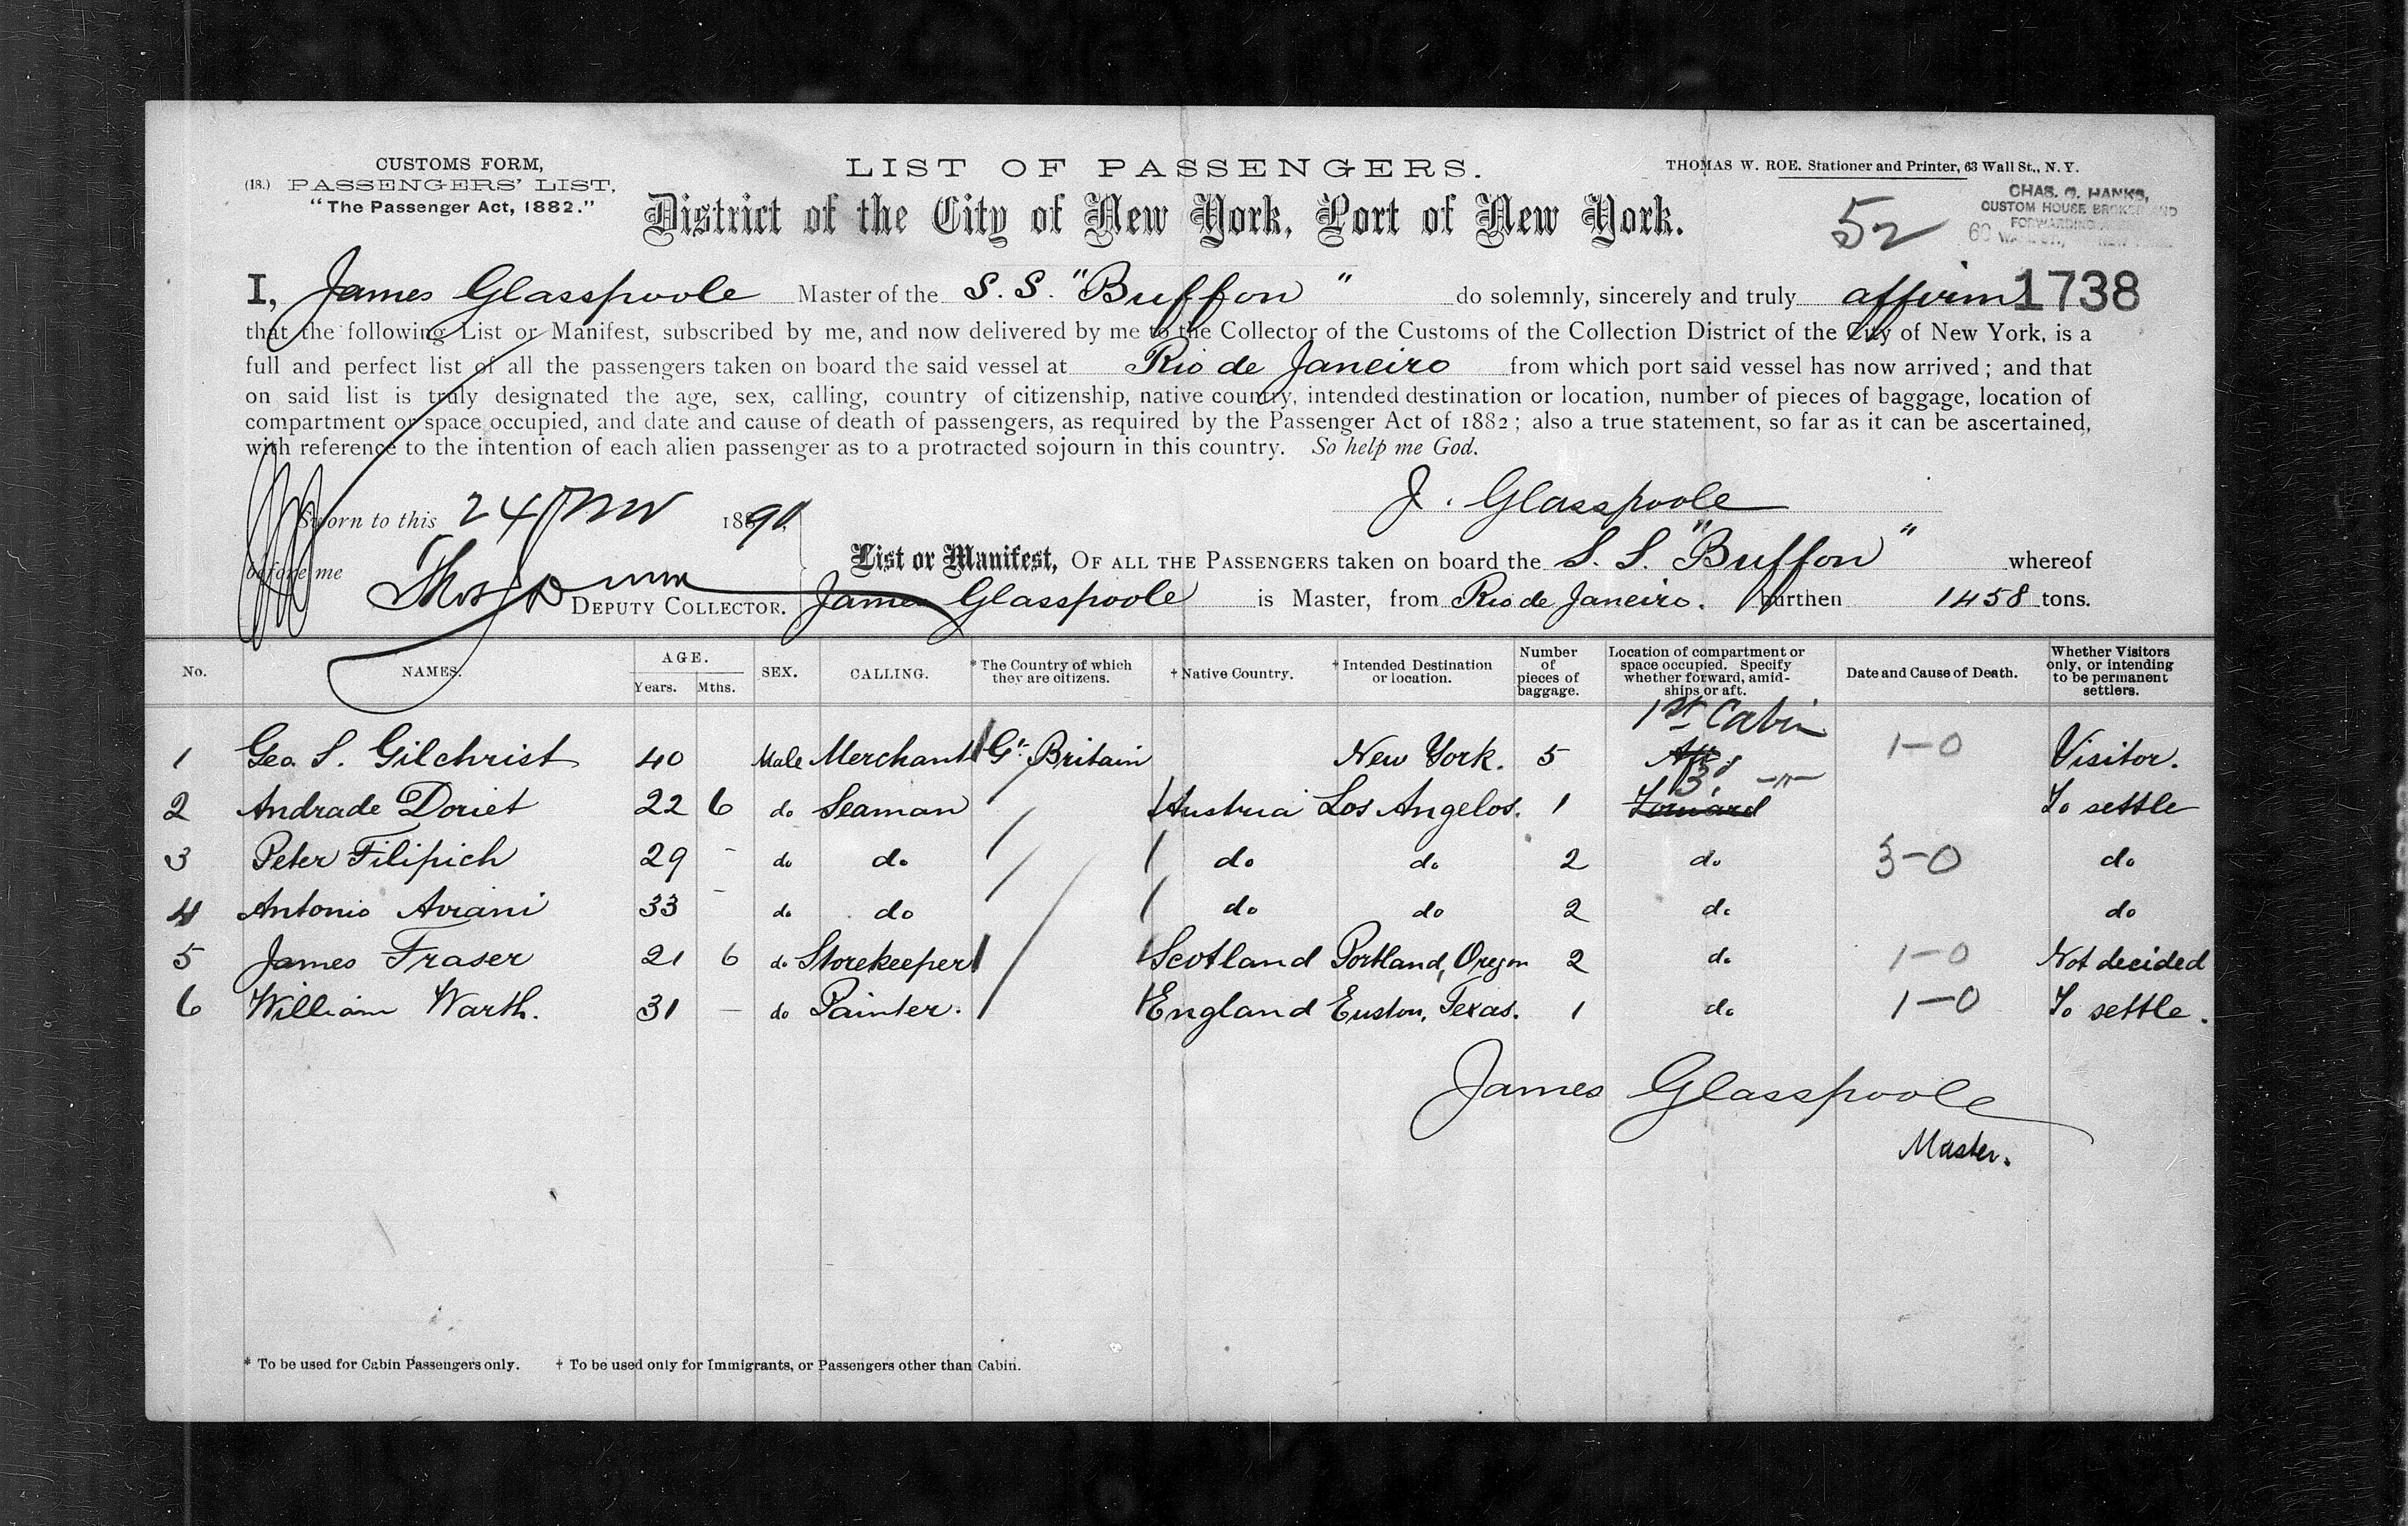 CUSTOMS FORM,
(18.) PASSENGERS' LIST,
"The Passenger Act, 1882."
LIST OF PASSENGERS.
District of the City of New York, Port of New York.
THOMAS W. ROE. Stationer and Printer, 63 Wall St., N. Y.
CHAS. O. HANKS,
CUSTOM HOUSE BROKER AND
FORWARDING
52
1738
I, James Glasspoole Master of the S. S. "Buffon" do solemnly, sincerely and truly affirm
that the following List or Manifest, subscribed by me, and now delivered by me to the Collector of the Customs of the Collection District of the City of New York, is a
full and perfect list of all the passengers taken on board the said vessel at Rio de Janeiro from which port said vessel has now arrived; and that
on said list is truly designated the age, sex, calling, country of citizenship, native country, intended destination or location, number of pieces of baggage, location of
compartment or space occupied, and date and cause of death of passengers, as required by the Passenger Act of 1882; also a true statement, so far as it can be ascertained,
with reference to the intention of each alien passenger as to a protracted sojourn in this country. So help me God.
J. Glasspoole
Sworn to this 24 Nov 1890
before me Thos Dunn
DEPUTY COLLECTOR.
List or Manifest, OF ALL THE PASSENGERS taken on board the S. S. "Buffon" whereof
James Glasspoole is Master, from Rio de Janeiro. burthen 1458 tons.
No. NAMES. AGE. Years. Mths. SEX. CALLING. * The Country of which they are citizens. † Native Country. † Intended Destination or location. Number of pieces of baggage. Location of compartment or space occupied. Specify whether forward, amidships or aft. Date and Cause of Death. Whether Visitors only, or intending to be permanent settlers.
1st Cabin
1 Geo. S. Gilchrist 40 Male Merchant Gt. Britain New York. 5 Aft 1-0 Visitor.
2 Andrade Doriet 22 6 do Seaman Austria Los Angelos. 1 Forward To settle
3 Peter Filipich 29 - do do do do 2 do 3-0 do
4 Antonio Aviani 33 - do do do do 2 do do
5 James Fraser 21 6 do Storekeeper Scotland Portland, Oregon 2 do 1-0 Not decided
6 William Warth. 31 - do Painter. England Euston, Texas. 1 do 1-0 To settle.
James Glasspoole
Master.
* To be used for Cabin Passengers only. † To be used only for Immigrants, or Passengers other than Cabin.